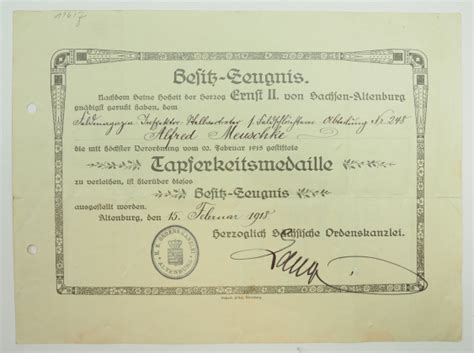 Besitz-Zeugnis.
Nachdem Seine Hoheit der Herzog Ernst II. von Sachsen-Altenburg
gnädigst geruht haben, dem
Feldmagazin Inspektor Stellvertreter Abteilung Nr. 248
Alfred Meuschke
die mit höchster Verordnung vom 20. Februar 1915 gestiftete
Tapferkeitsmedaille
zu verleihen, ist hierüber dieses
Besitz-Zeugnis
ausgestellt worden.
Altenburg, den 15. Februar 1918
Herzoglich Sächsische Ordenskanzlei.
ALTENBURG